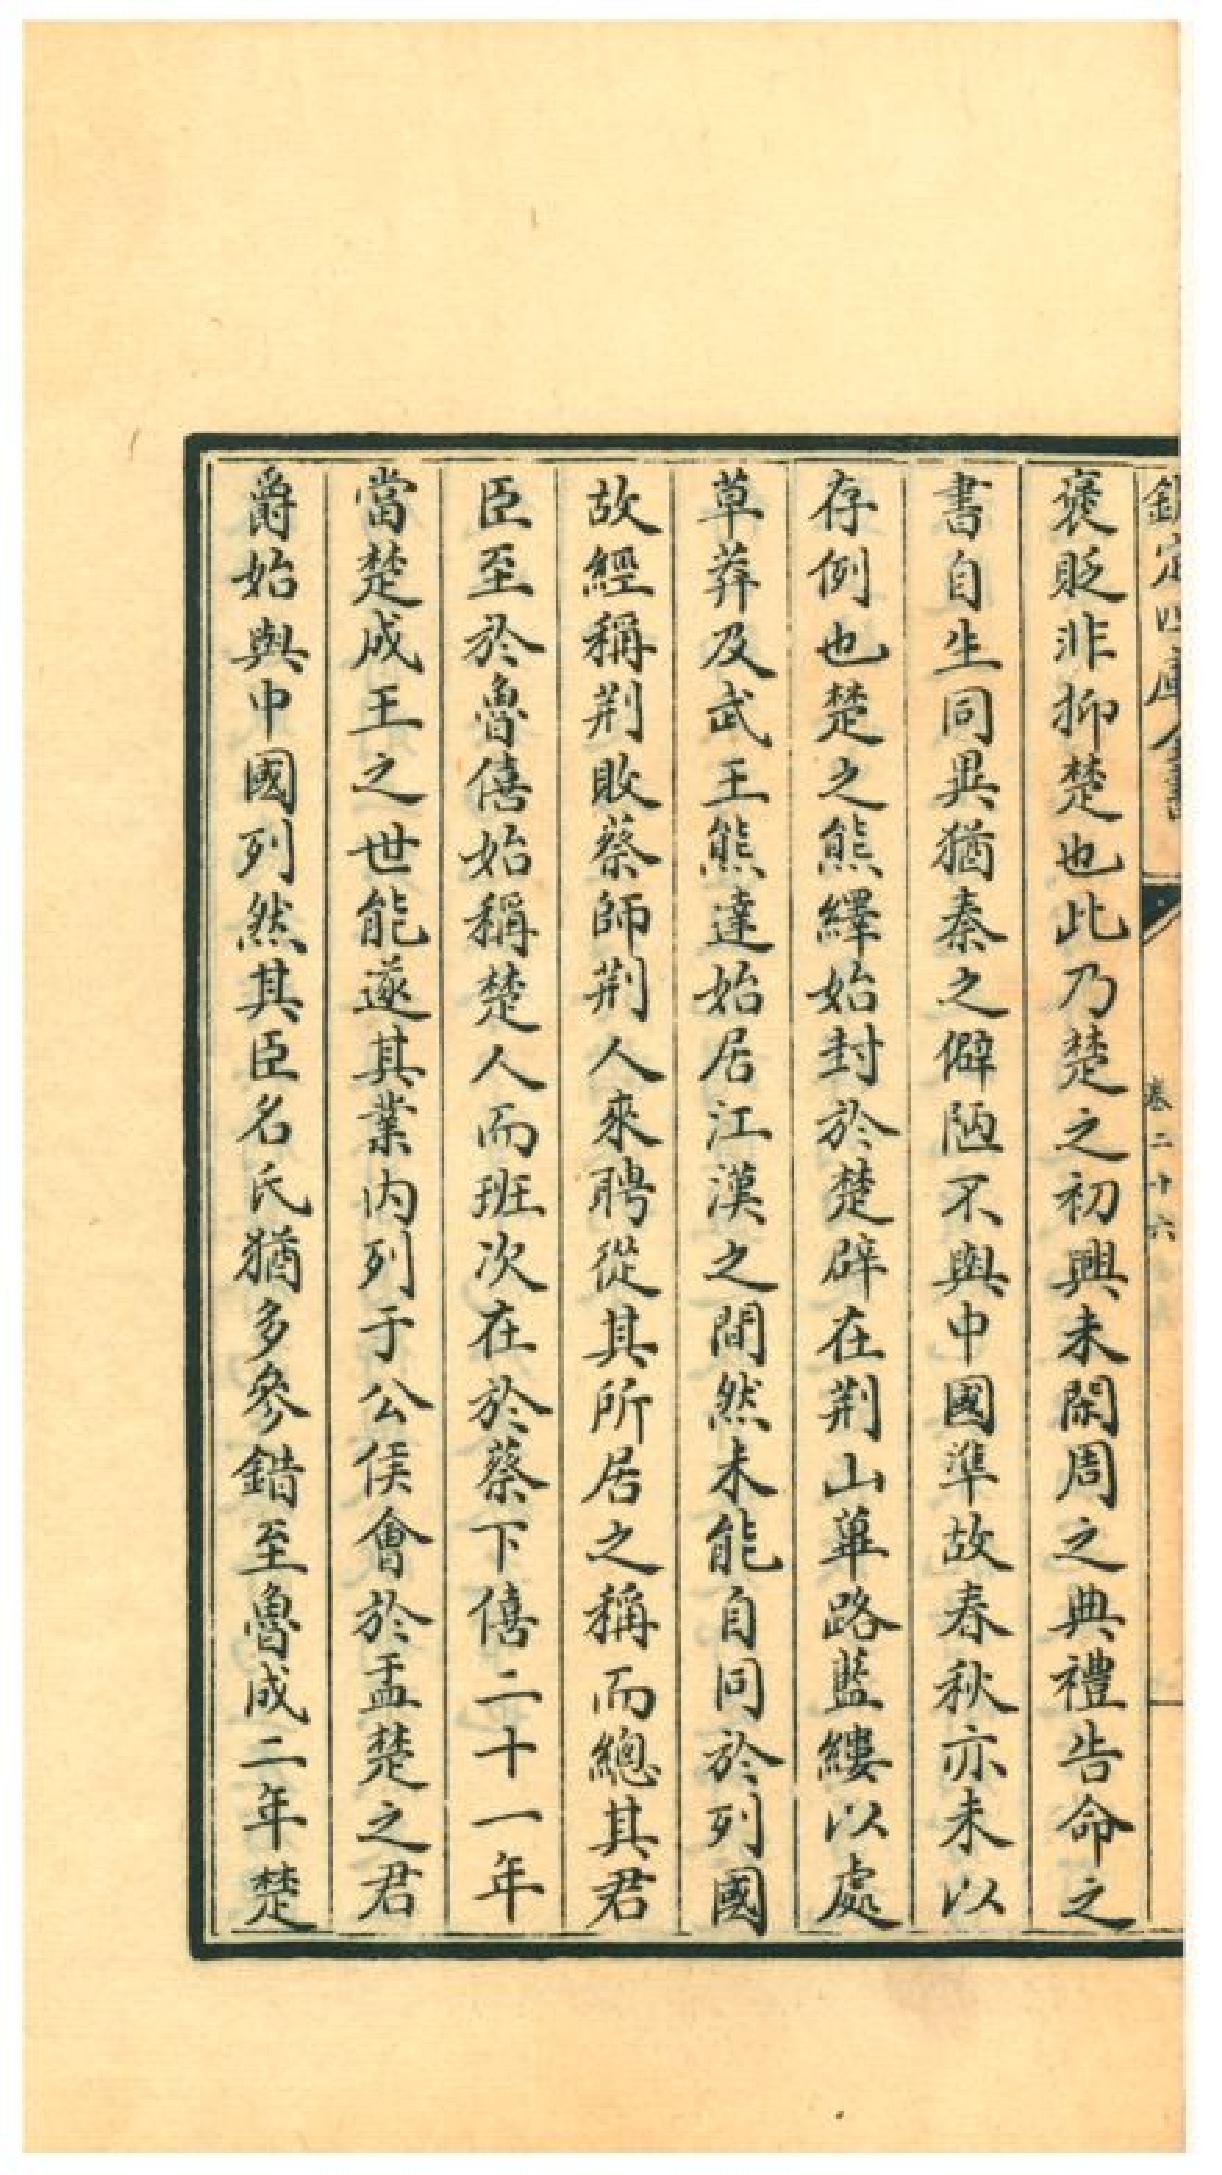 欽定四庫全書
卷二十六
褒貶非抑楚也此乃楚之初興未閑周之典禮告命之
書自生同異猶秦之僻陋不與中國準故春秋亦未以
存例也楚之熊繹始封於楚辟在荆山蓽路藍縷以處
草莽及武王熊達始居江漢之間然未能自同於列國
故經稱荆敗蔡師荆人來聘從其所居之稱而總其君
臣至於魯僖始稱楚人而班次在於蔡下僖二十一年
當楚成王之世能遂其業内列于公侯會於盂楚之君
爵始與中國列然其臣名氏猶多參錯至魯成二年楚